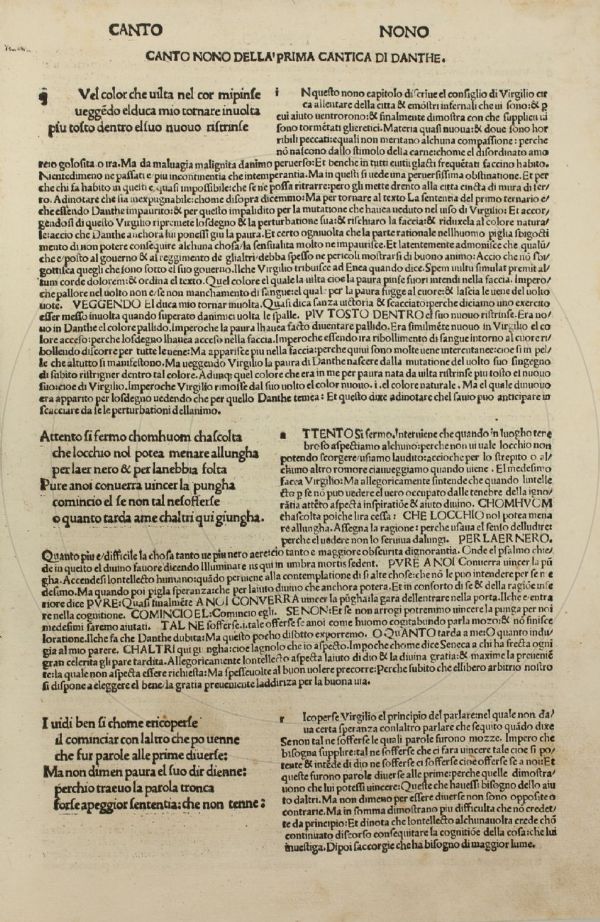 CANTO NONO
CANTO NONO DELLA PRIMA CANTICA DI DANTHE.
q Vel color che uilta nel cor mipinse
ueggẽdo elduca mio tornare inuolta
piu tosto dentro elsuo nuouo ristrinse
i N questo nono capitolo discriue el consiglio di Virgilio cir
ca allentare della citta & emõstri infernali che ui sono: & p
cui aiuto uentrorono: & finalmente dimostra con che supplicii ui
sono tormẽtati glieretici. Materia quasi nuoua: & doue sono hor
ribili peccati: equali non meritano alchuna compassione: perche
nõ nascono dallo stimolo della carne: chome el disordinato amo
re io golosita o ira. Ma da maluagia malignita danimo peruerso: Et benche in tutti euitii glacti frequẽtati faccino habito.
Nientedimeno ne passati e piu incontinentia che intemperantia. Ma in questi si uede una peruersissima obstinatione. Et per
che chi fa habito in questi e quasi impossibile: che se ne possa ritrarre: pero gli mette drento alla citta cincta di mura di fer
ro. Adinotare che sia inexpugnabile: chome disopra dicemmo: Ma per tornare al texto La sententia del primo ternario e
che essendo Danthe impaurito: & per questo impalidito per la mutatione che hauea ueduto nel uiso di Virgilio: Et accor
gendosi di questo Virgilio ripremette losdegno & la perturbatione sua: & rischiaro la faccia: & riduxela al colore natura
le: accio che Danthe anchora lui ponessi giu la paura: Et certo ogniuolta che la parte rationale nellhuomo piglia sbigocti
mento di non potere conseguire alchuna chosa/ la sensualita molto ne impaurisce. Et latentemente admonisce che qualũ
che e posto al gouerno & al reggimento de glialtri/ debba spesso ne pericoli mostrarsi di buono animo: Accio che nõ sbi
gottisca quegli che sono sotto el suo gouerno. Ilche Virgilio tribuisce ad Enea quando dice. Spem uultu simulat premit al
tum corde dolorem: & ordina el texto. Quel colore el quale la uilta cioe la paura pinse fuori intendi nella faccia. Impero
che pallore nel uolto non e se non manchamento di sangue: el qual per la paura fugge al cuore: & lascia le uene del uolto
uote. VEGGENDO El duca mio tornar inuolta. Quasi dica sanza uictoria & scacciato: perche diciamo uno exercito
esser messo inuolta quando superato da nimici uolta le spalle. PIV TOSTO DENTRO el suo nuouo ristrinse. Era nuo
uo in Danthe el colore pallido. Imperoche la paura lhauea facto diuentare pallido. Era similmẽte nuouo in Virgilio el co
lore acceso: perche losdegno lhauea acceso nella faccia. Imperoche essendo ira ribollimento di sangue intorno al cuore ri
bollendo discorre per tutte le uene: Ma apparisce piu nella faccia: perche quiui sono molte uene intercutanee: cioe si in pel
le che altutto si manifestono. Ma ueggendo Virgilio la paura di Danthe nascere dalla mutatione del uolto suo singegno
di subito ristrigner dentro tal colore. Adunq; quel colore che era in me per paura nata da uilta ristrinse piu tosto el nuouo
suo: cioe di Virgilio. Imperoche Virgilio rimosse dal suo uolto el color nuouo. i. el colore naturale. Ma el quale dinuouo
era apparito per losdegno uedendo che per quello Danthe temea: Et questo dixe adinotare chel sauio puo anticipare in
scacciare da se le perturbationi dellanimo.
Attento si fermo chomhuom chascolta
che locchio nol potea menare allungha
per laer nero & per lanebbia folta
Pure anoi conuerra uincer la pungha
comincio el se non tal nesofferse
o quanto tarda ame chaltri qui giungha.
a TTENTO Si fermo. Interuiene che quando in luogho tene
broso aspectiamo alchuno: perche non ui uale locchio non
potendo scorgere/ usiamo laudito: accioche per lo strepito o al
chuno altro romore ci aueggiamo quando uiene. El medesimo
faccea Virgilio: Ma allegoricamente sintende che quando lintelle
cto p se nõ puo uedere el uero occupato dalle tenebre della igno
rãtia attẽto aspecta inspiratiõe & aiuto diuino. CHOMHVOM
chascolta poiche lira cessa: CHE LOCCHIO nol potea mena
re allungha. Assegna la ragione: perche usaua el senso delludire:
perche el uedere non lo seruiua dalungi. PER LAER NERO.
Quanto piu e difficile la chosa tanto ue piu nero aere cio tanto e maggiore obscurita dignorantia. Onde el psalmo chie
de in questo el diuino fauore dicendo Illuminare iis qui in umbra mortis sedent. PVRE A NOI Conuerra uincer la pũ
gha. Accendesi lontellecto humano: quãdo peruiene alla contemplatione di si alte chose: che nõ le puo intendere per se ne
desimo. Ma quando poi piglia speranza: che per laiuto diuino che anchora potera. Et in conforto di se & della ragiõe infe
riore dice PVRE: Quasi finalmẽte A NOI CONVERRA uincer la pũgha/ la gara dellentrare nella porta. Ilche e entra
re nella cognitione. COMINCIO EL: Comincio egli. SE NON: Et se non arrogi potremmo uincere la punga per noi
medesimi faremo aiutati. TAL NE sofferse. i. tale offerse se anoi come huomo cogitabundo parla mozo: & nõ finisce
loratione. Ilche fa che Danthe dubita: Ma questo pocho disotto exporremo. O QVANTO tarda a me: O quanto indu
gia al mio parere. CHALTRI qui giungha: cioe lagnolo che io aspecto. Impoche chome dice Seneca a chi ha frecta ogni
gran celerita gli pare tardita. Allegoricamente lontellecto aspecta laiuto di dio & la diuina gratia: & maxime la preueniẽ
te: la quale non aspecta essere richiesta: Ma spesseuolte al buon uolere precorre: Perche subito che ellibero arbitrio nostro
si dispone a eleggere el bene/ la gratia preueniente laddiriza per la buona uia.
I uidi ben si chome ericoperse
il cominciar con laltro che po uenne
che fur parole alle prime diuerse:
Ma non dimen paura el suo dir dienne:
perchio traeuo la parola tronca
forse apeggior sententia: che non tenne:
r Icoperse Virgilio el principio del parlare: nel quale non da
ua certa speranza con laltro parlare che sequito quãdo dixe
Se non tal ne sofferse le quali parole furono mozze. Impero che
bisogna supplire: tal ne sofferse che ci fara uincere tale cioe si po
tente & intẽde di dio ne sofferse ci sofferse cioe offerse se a noi: Et
queste furono parole diuerse alle prime: perche quelle dimostra
uono che lui potessi uincere: Queste che hauessi bisogno dello aiu
to daltri. Ma non dimeno per essere diuerse non sono opposite o
contrarie. Ma in somma dimostrano piu difficulta che nõ credet
te da principio: Et dinota che lontellecto alchunauolta crede chõ
continuato discorso consequitare la cognitiõe della cosa: che lui
inuestiga. Dipoi saccorgie che ha bisogno di maggior lume.